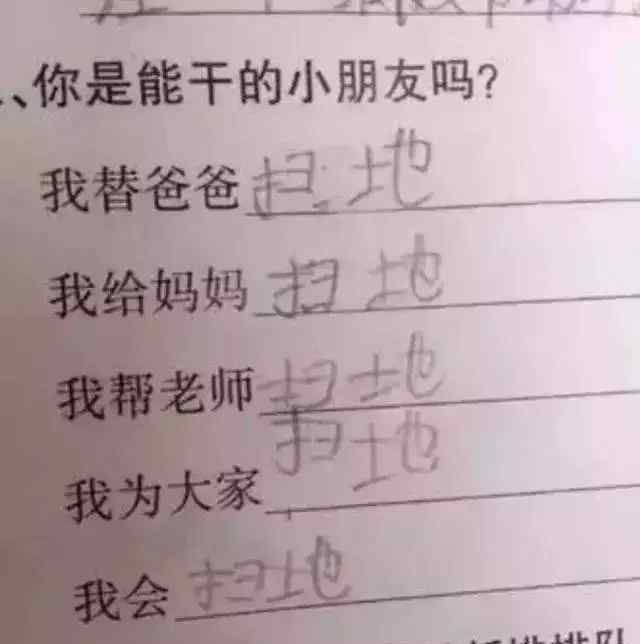 、你是能干的小朋友吗?
我替爸爸扫地
我给妈妈扫地
我帮老师扫地
我为大家扫地
我会扫地
排队